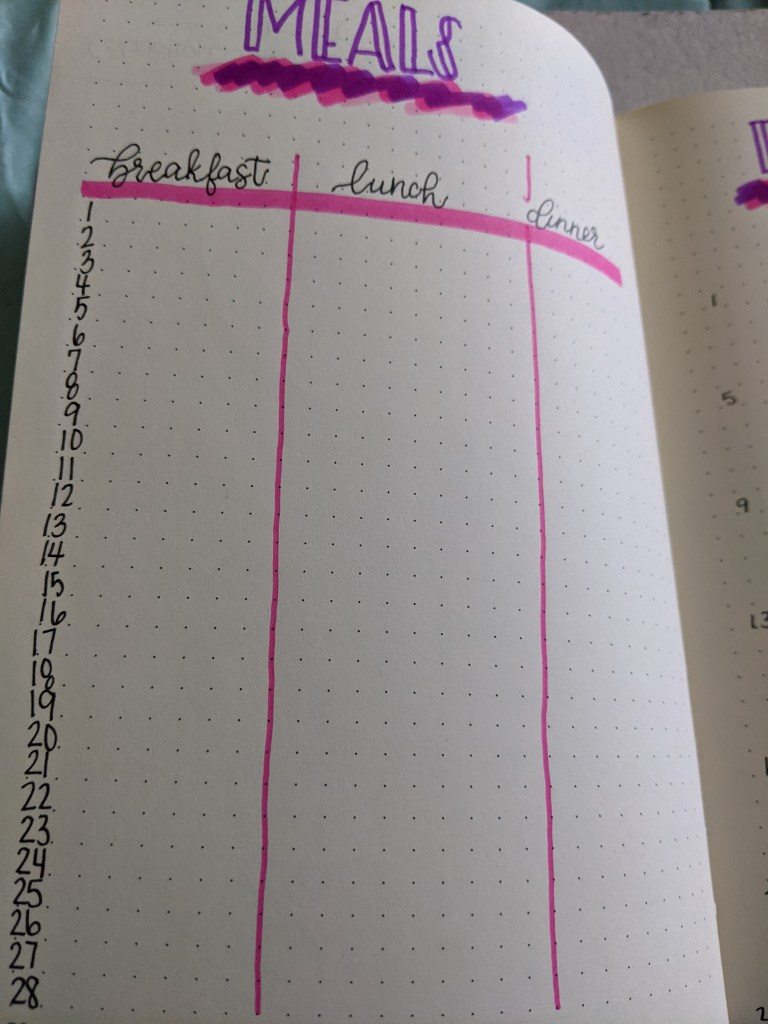 MEALS
breakfast lunch dinner
1
2
3
4
5
6
7
8
9
10
11
12
13
14
15
16
17
18
19
20
21
22
23
24
25
26
27
28
1
5
9
13